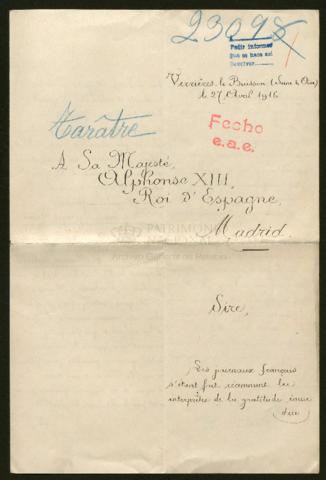 23098
Pedir informes
Que se hace así
Verrières le Buisson (Seine & Oise)
le 27 Avril 1916
Tarâtre
Fecho
e.a.e.
A Sa Majesté,
Alphonse XIII,
Roi d'Espagne,
Madrid.
PATRIMONIO
NACIONAL
Archivo General de Palacio
Sire,
Les journaux français
s'étant fait récemment les
interprètes de la gratitude